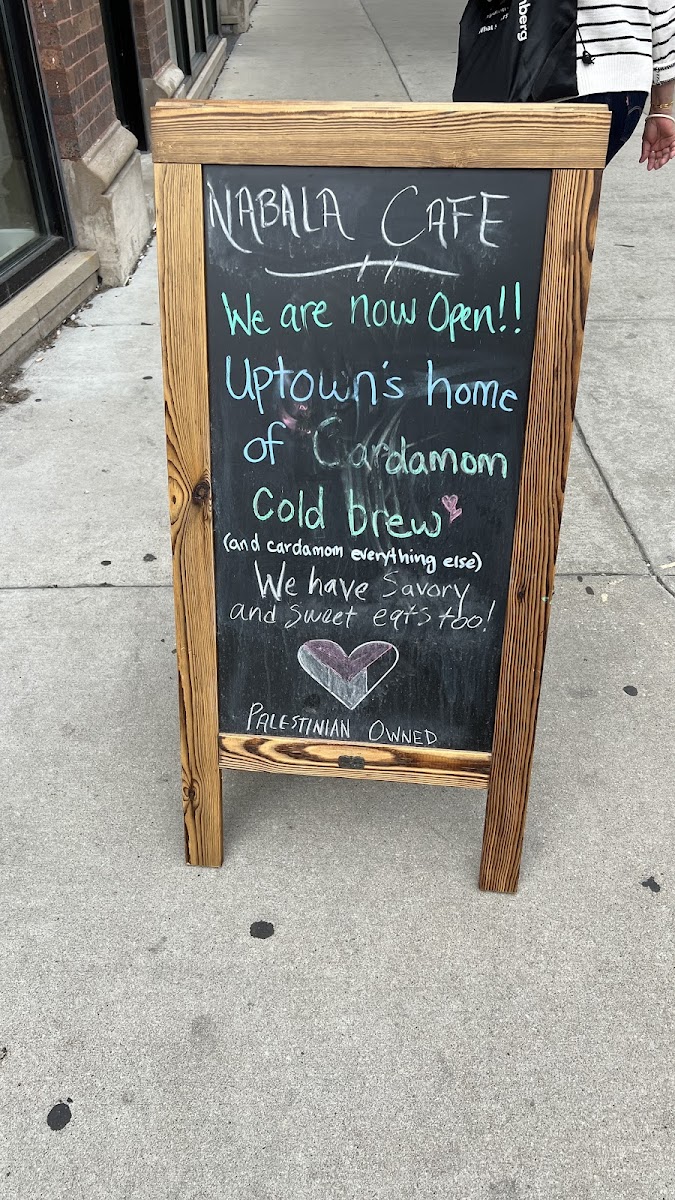 NABALA CAFE
We are now Open!!
Uptown's home
of Cardamom
Cold brew
(and cardamom everything else)
We have Savory
and sweet eats too!
PALESTINIAN OWNED